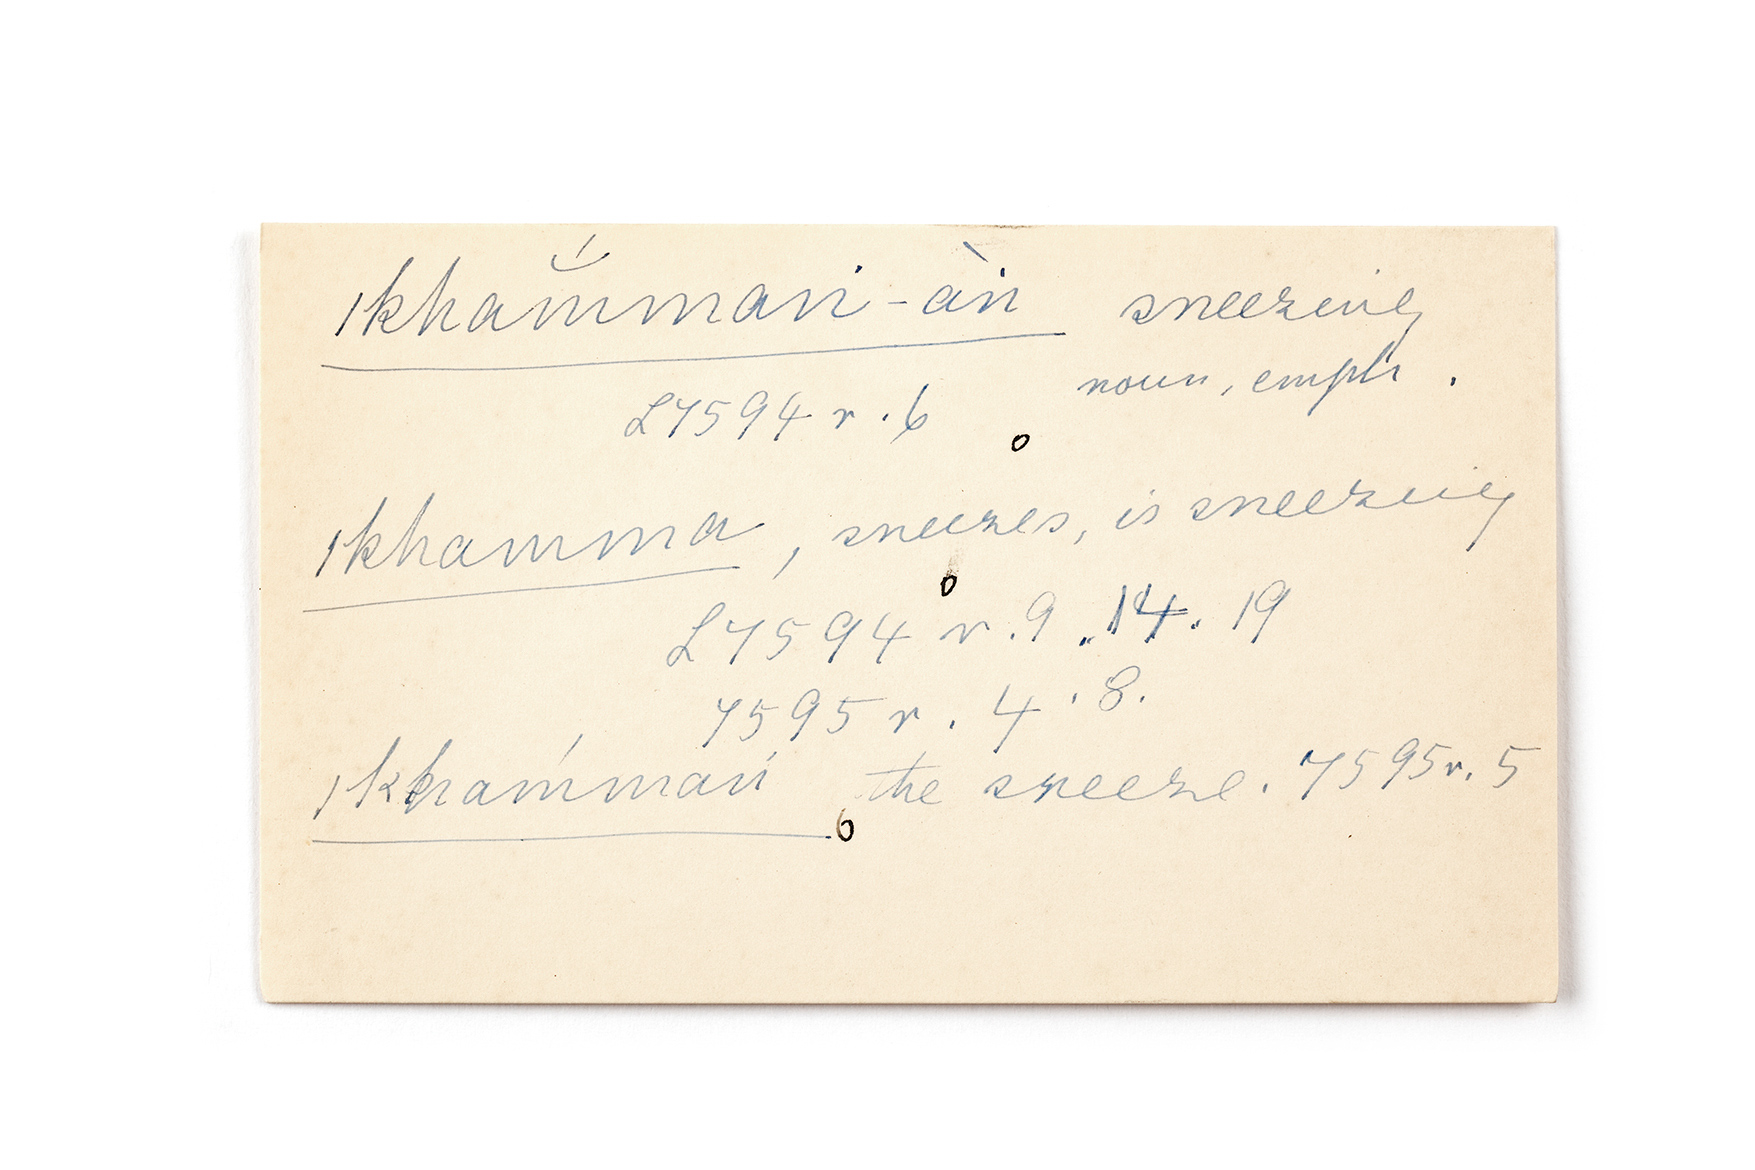 |khắmmai-àn sneezing
noun, emph.
L7594 r. 6
o
|khamma, sneezes, is sneezing
o
L7594 r. 9. 14. 19
7595 r. 4. 8.
|khámmai the sneeze. 7595 r. 5
o